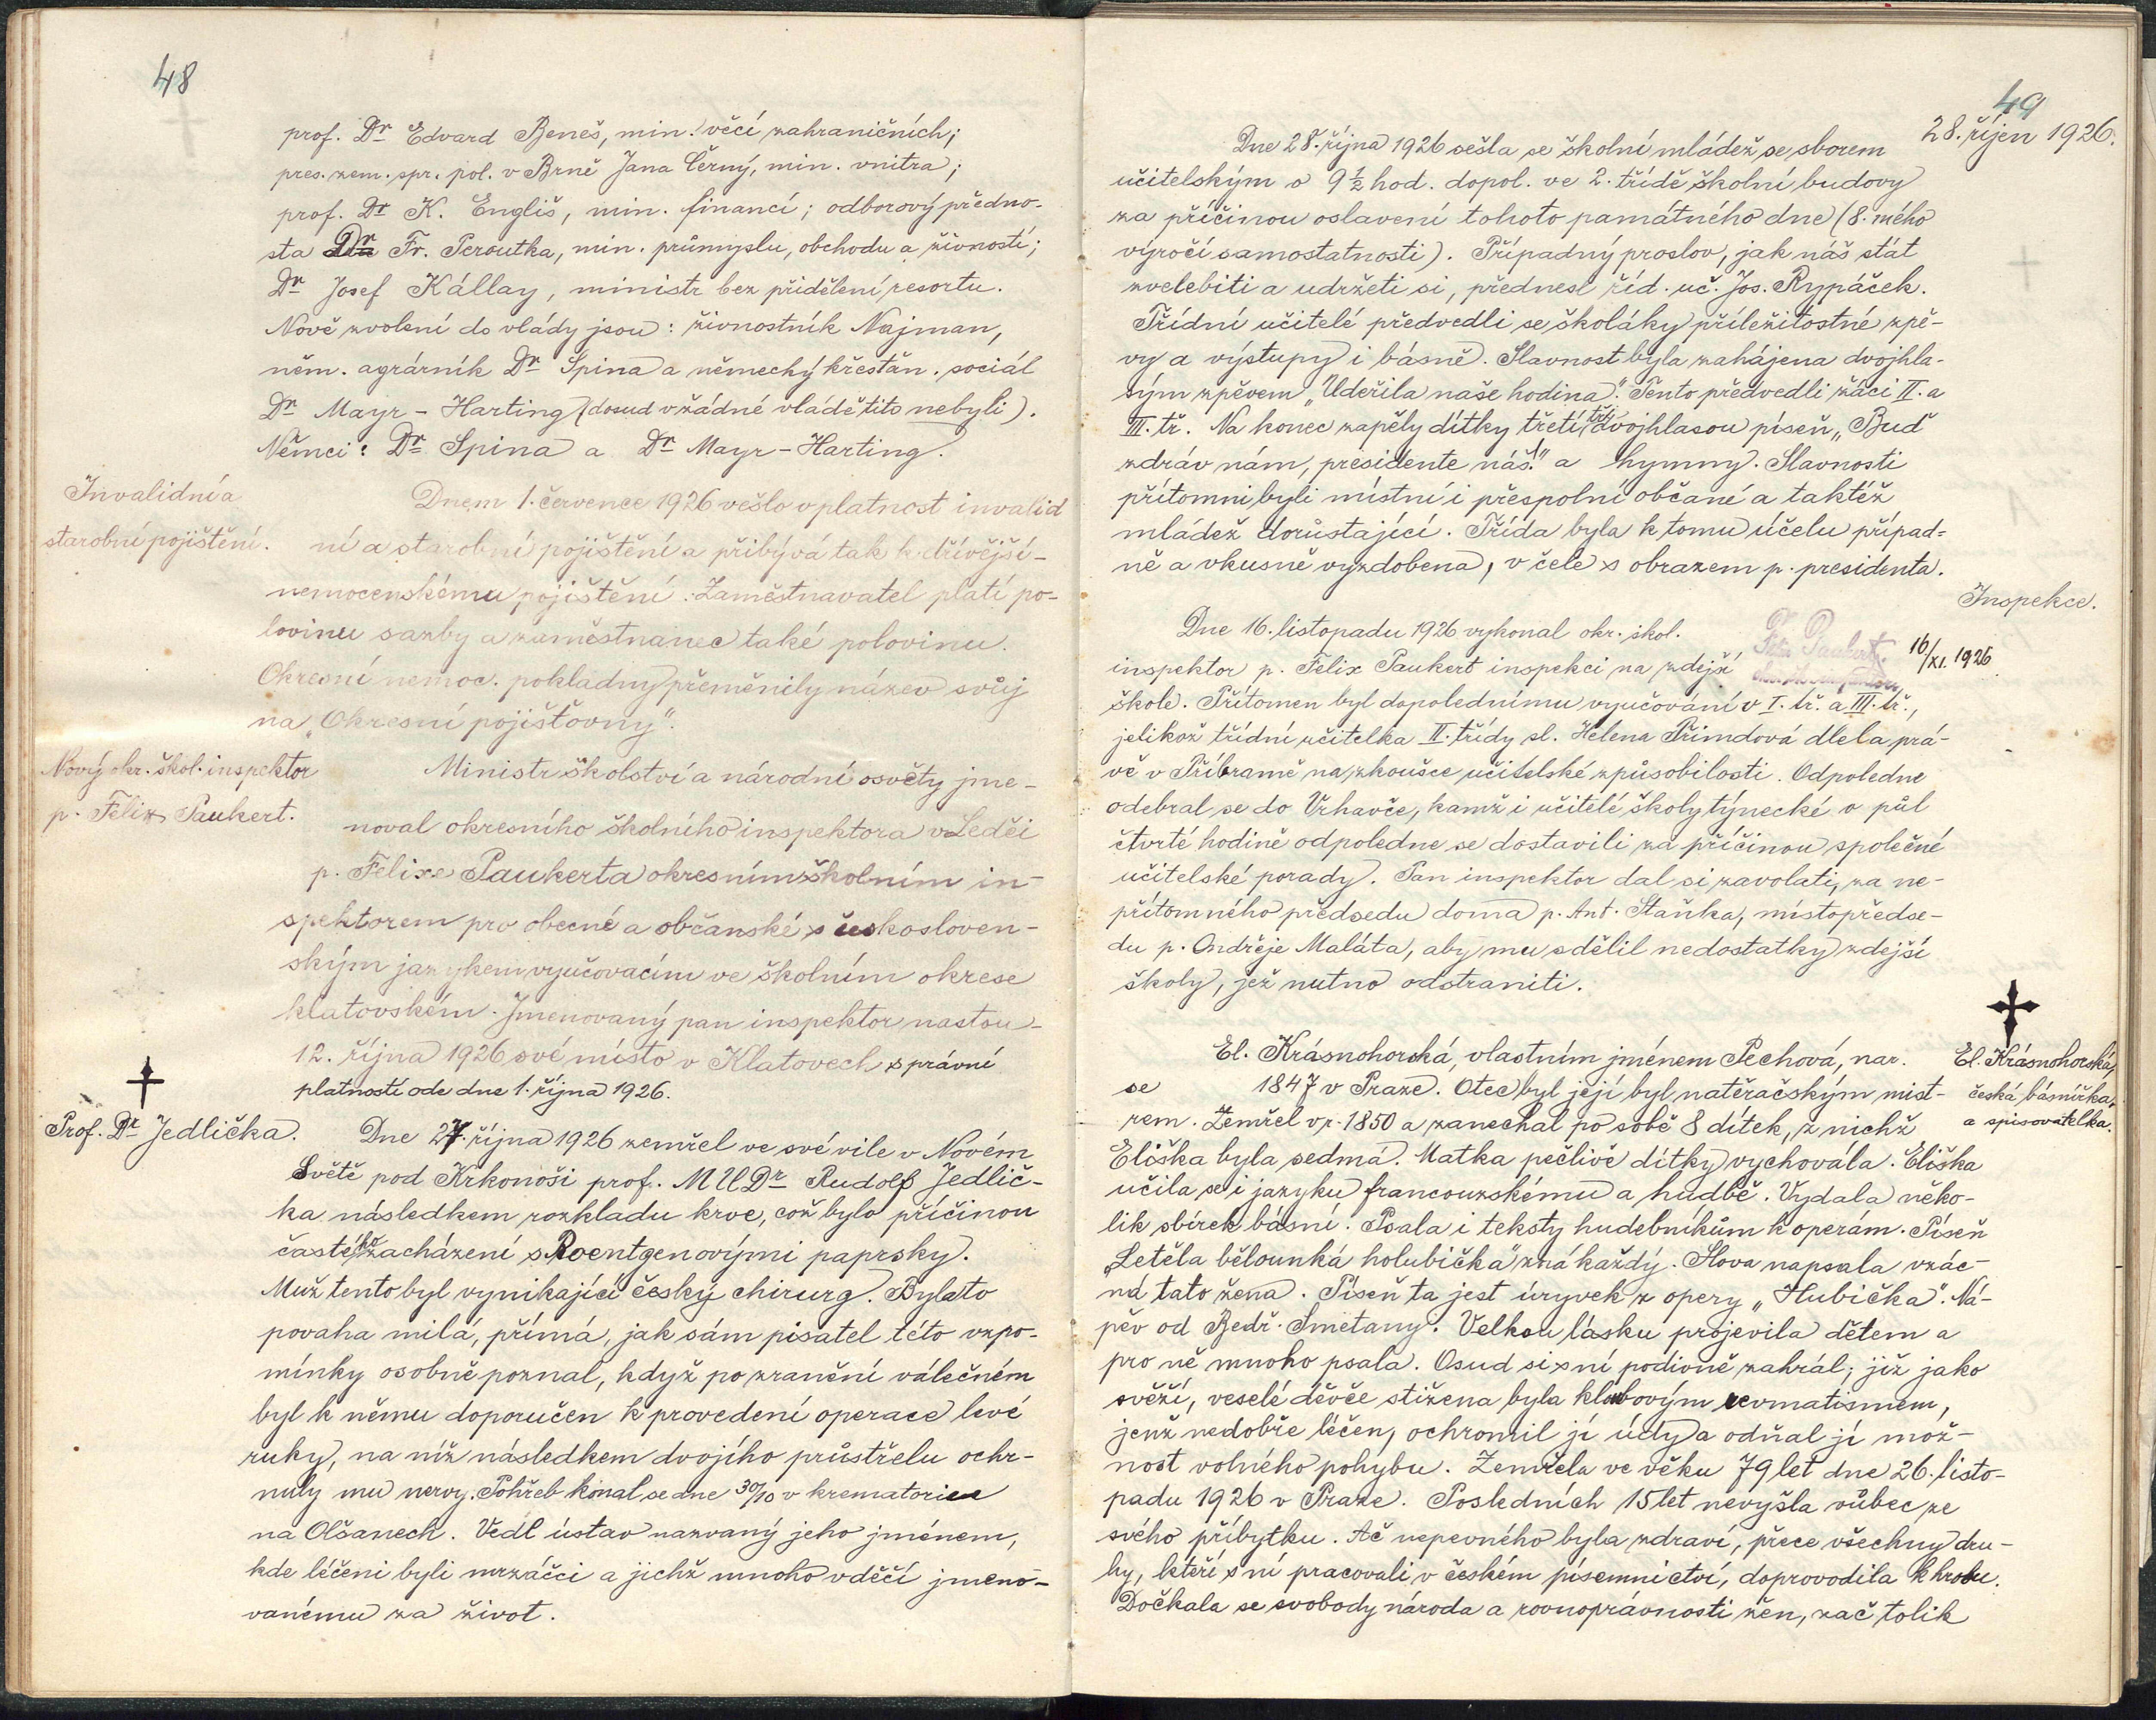 48
prof. Dr Edvard Beneš, min. věcí zahraničních;
pres. zem. spr. pol. v Brně Jana Černý, min. vnitra;
prof. Dr K. Engliš, min. financí; odborový předno-
sta Dr Fr. Peroutka, min. průmyslu, obchodu a živností;
Dr Josef Kállay, ministr bez přidělení resortu.
Nově zvolení do vlády jsou: živnostník Najman,
něm. agrárník Dr Spina a německý křesťan. sociál
Dr Mayr-Harting (dosud v žádné vládě tito nebyli).
Němci: Dr Spina a Dr Mayr-Harting.
Invalidní a
starobní pojištění.
Dnem 1. července 1926 vešlo v platnost invalid
ní a starobní pojištění a přibývá tak k dřívější-
nemocenskému pojištění. Zaměstnavatel platí po-
lovinu sazby a zaměstnanec také polovinu.
Okresní nemoc. pokladny přeměnily název svůj
na „Okresní pojišťovny".
Nový okr. škol. inspektor
p. Felix Paukert.
Ministr školství a národní osvěty jme-
noval okresního školního inspektora v Ledči
p. Felixe Paukerta okresním školním in-
spektorem pro obecné a občanské s českosloven-
ským jazykem vyučovacím ve školním okrese
klatovském. Jmenovaný pan inspektor nastou-
12. října 1926 své místo v Klatovech s právní
platností ode dne 1. října 1926.
Prof. Dr Jedlička.
Dne 27. října 1926 zemřel ve své vile v Novém
Světě pod Krkonoši prof. MUDr Rudolf Jedlič-
ka následkem rozkladu krve, což bylo příčinou
častého zacházení s Roentgenovými paprsky.
Muž tento byl vynikající český chirurg. Byla to
povaha milá, přímá, jak sám pisatel této vzpo-
mínky osobně poznal, když po zranění válečném
byl k němu doporučen k provedení operace levé
ruky, na níž následkem dvojího průstřelu ochr-
nuly mu nervy. Pohřeb konal se dne 30/10 v krematoriu
na Olšanech. Vedl ústav nazvaný jeho jménem,
kde léčeni byli mrzáčci a jichž mnoho vděčí jmeno-
vanému za život.
49
28. říjen 1926.
Dne 28. října 1926 sešla se školní mládež se sborem
učitelským o 9 1/2 hod. dopol. ve 2. třídě školní budovy
za příčinou oslavení tohoto památného dne (8. mého
výročí samostatnosti). Případný proslov, jak náš stát
zvelebiti a udržeti si, přednesl říd. uč. Jos. Rypáček.
Třídní učitelé předvedli se školáky příležitostné zpě-
vy a výstupy i básně. Slavnost byla zahájena dvojhla-
sým zpěvem „Udeřila naše hodina". Tento předvedli žáci II. a
III. tř. Na konec zapěly dítky třetí tř. dvojhlasou píseň „Buď
zdráv nám, presidente náš!" a hymny. Slavnosti
přítomni byli místní i přespolní občané a taktéž
mládež dorůstající. Třída byla k tomu účelu případ-
ně a vkusně vyzdobena, v čele s obrazem p. presidenta.
Inspekce.
Dne 16. listopadu 1926 vykonal okr. škol.
inspektor p. Felix Paukert inspekci na zdejší
16/XI. 1926
škole. Přítomen byl dopolednímu vyučování v I. tř. a III. tř.,
jelikož třídní učitelka II. třídy sl. Helena Přimdová dlela prá-
vě v Příbramě na zkoušce učitelské způsobilosti. Odpoledne
odebral se do Vrhavče, kamž i učitelé školy týnecké o půl
čtvrté hodině odpoledne se dostavili za příčinou společné
učitelské porady. Pan inspektor dal si zavolati, za ne-
přítomného předsedu doma p. Ant. Staňka, místopředse-
du p. Ondřeje Maláta, aby mu sdělil nedostatky zdejší
školy, jež nutno odstraniti.
El. Krásnohorská,
česká básnířka,
a spisovatelka.
El. Krásnohorská, vlastním jménem Pechová, nar.
se 1847 v Praze. Otec byl její byl natěračským mist-
rem. Zemřel v r. 1850 a zanechal po sobě 8 dítek, z nichž
Eliška byla sedmá. Matka pečlivě dítky vychovála. Eliška
učila se i jazyku francouzskému a hudbě. Vydala něko-
lik sbírek básní. Psala i teksty hudebníkům k operám. Píseň
„Letěla bělounká holubička" zná každý. Slova napsala vzác-
ná tato žena. Píseň ta jest úryvek z opery „Hubička". Ná-
pěv od Bedř. Smetany. Velkou lásku projevila dětem a
pro ně mnoho psala. Osud si s ní podivně zahrál; již jako
svěží, veselé děvče stižena byla kloubovým revmatismem,
jenž nedobře léčen, ochromil jí údy a odňal jí mož-
nost volného pohybu. Zemřela ve věku 79 let dne 26. listo-
padu 1926 v Praze. Posledních 15 let nevyšla vůbec ze
svého příbytku. Ač nepevného byla zdraví, přece všechny dru-
hy, kteří s ní pracovali v českém písemnictví, doprovodila k hrobu.
Dočkala se svobody národa a rovnoprávnosti žen, zač tolik